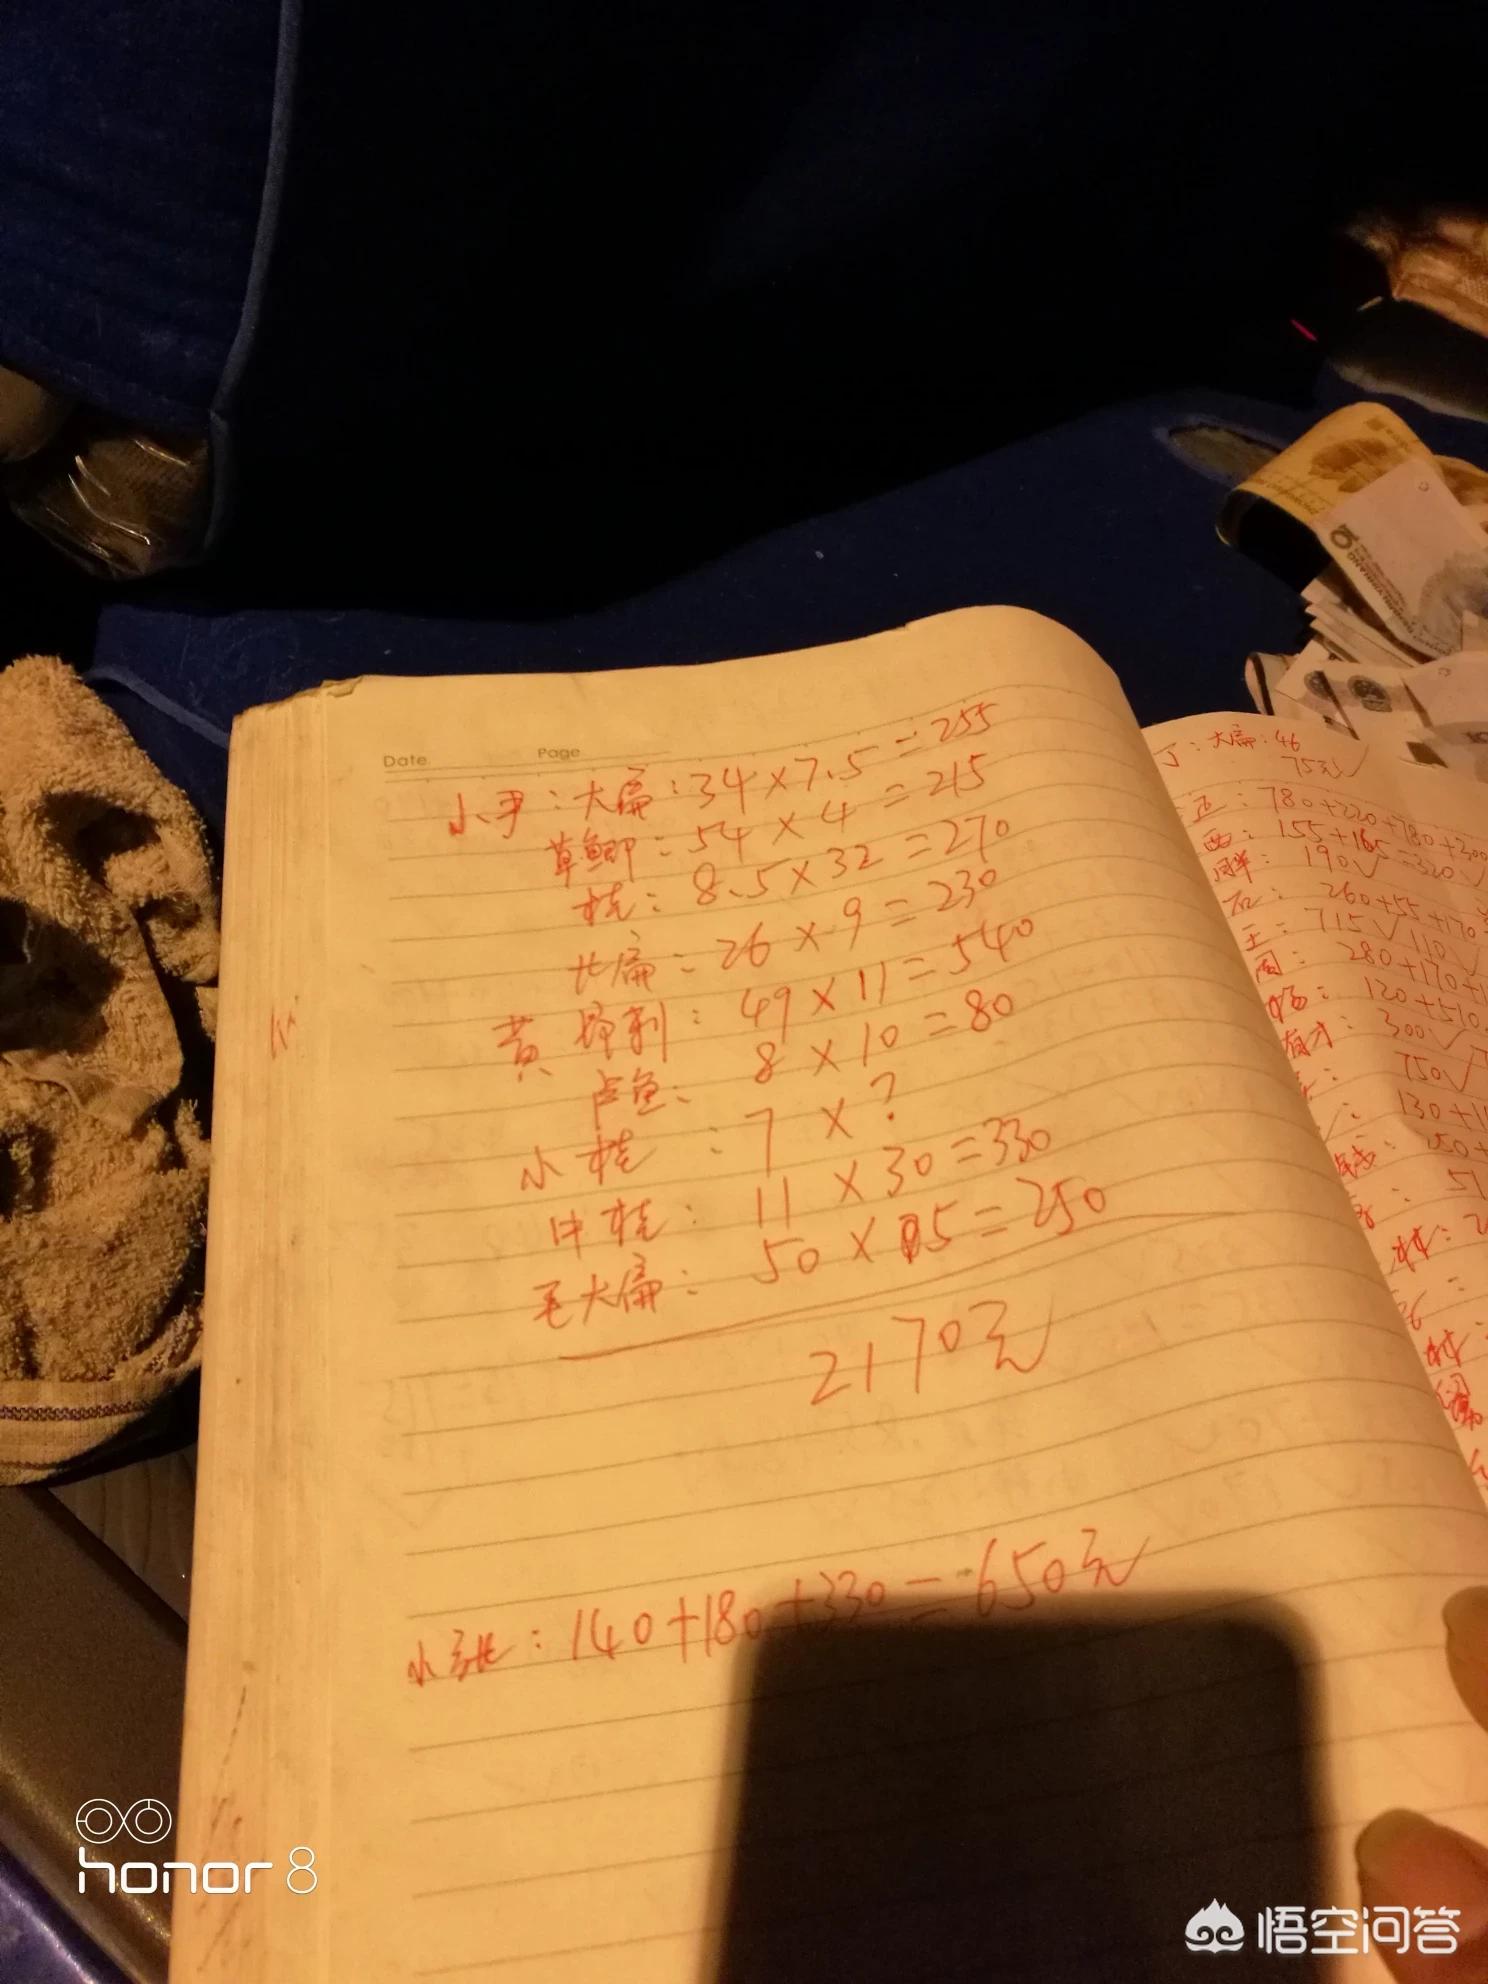 Date Page
小尹：大扁：34×7.5=255
草鲫：54×4=215
桂：8.5×32=270
比扁：26×9=230
黄 昂刺：49×11=540
卢鱼：8×10=80
小桂：7×?
中桂：11×30=330
毛大扁：50×5=250
2170元
小张：140+180+330=650元
丁：大扁：46
75元✓
780+220+780+300
西：155+165=320✓
190✓
石：260+55+170
王：715✓ 110✓
周：280+170+1
杨：120+510
有才：300✓
750✓
130+1
50+
51
林：2
honor 8
悟空问答